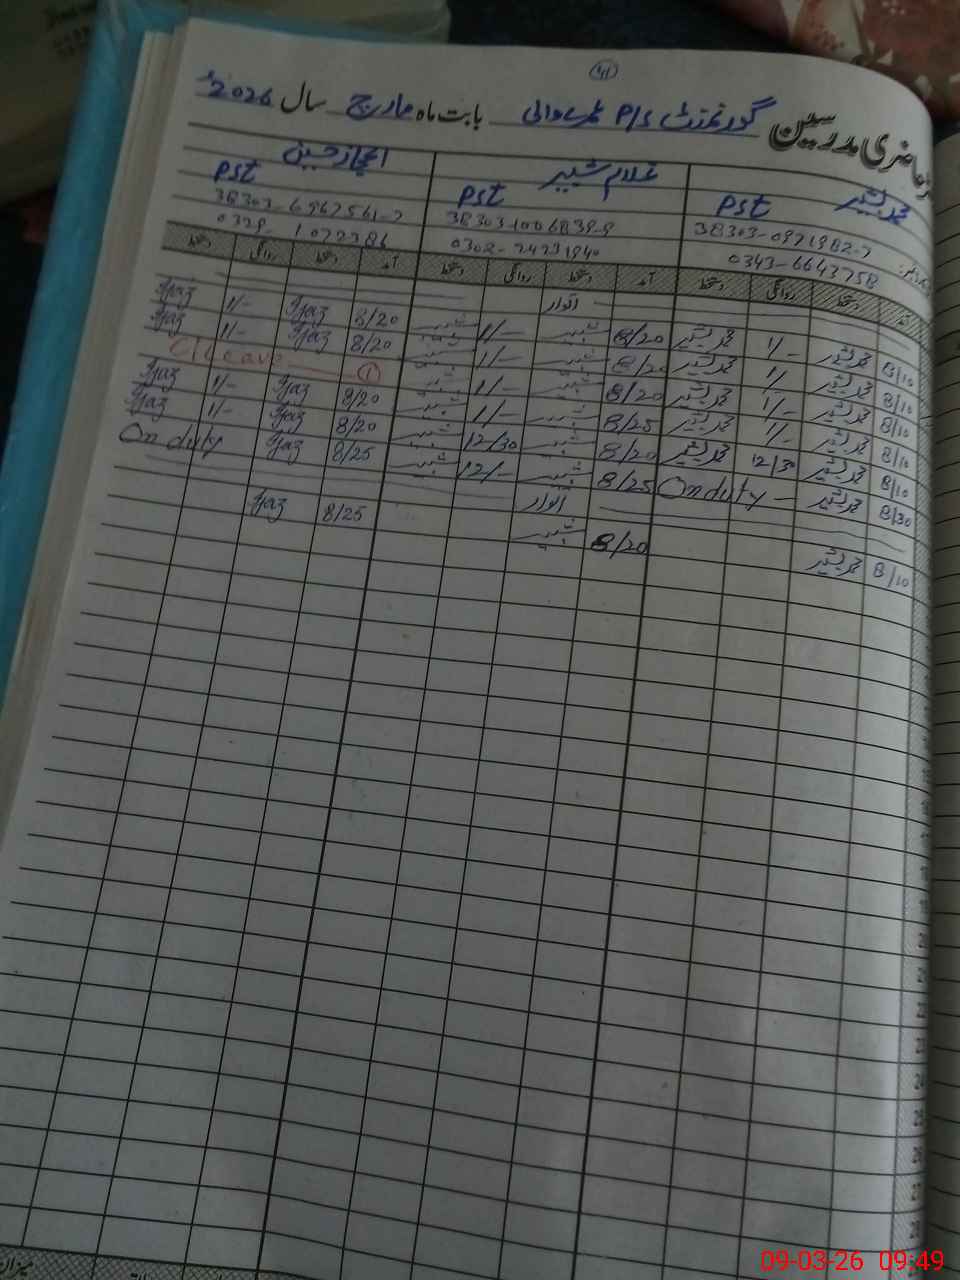 41
حاضری مدرسین گورنمنٹ P/S بابت ماہ مارچ سال 2026ء
محمد بشیر
PST
38303-0971982-7
0343-6643758
غلام شبیر
PST
38303-1006839-9
0302-74731940
اعجاز حسین
PST
38303-6967561-7
0329-1072386
آمد دستخط روانگی دستخط آمد دستخط روانگی دستخط آمد دستخط روانگی دستخط
اتوار
8/10 محمد بشیر 1/- محمد بشیر 8/20 شبیر 1/- شبیر 8/20 Ijaz 1/- Ijaz
8/10 محمد بشیر 1/- محمد بشیر 8/20 شبیر 1/- شبیر 8/20 Ijaz 1/- Ijaz
8/10 محمد بشیر 1/- محمد بشیر 8/20 شبیر 1/- شبیر C/Leave 1
8/10 محمد بشیر 1/- محمد بشیر 8/25 شبیر 1/- شبیر 8/20 Ijaz 1/- Ijaz
8/10 محمد بشیر 12/30 محمد بشیر 8/20 شبیر 12/30 شبیر 8/20 Ijaz 1/- Ijaz
8/30 محمد بشیر On duty 8/25 شبیر 12/- شبیر 8/25 Ijaz On duty
اتوار
8/10 محمد بشیر 8/20 شبیر 8/25 Ijaz
23
24
25
26
27
28
میزان
09-03-26 09:49